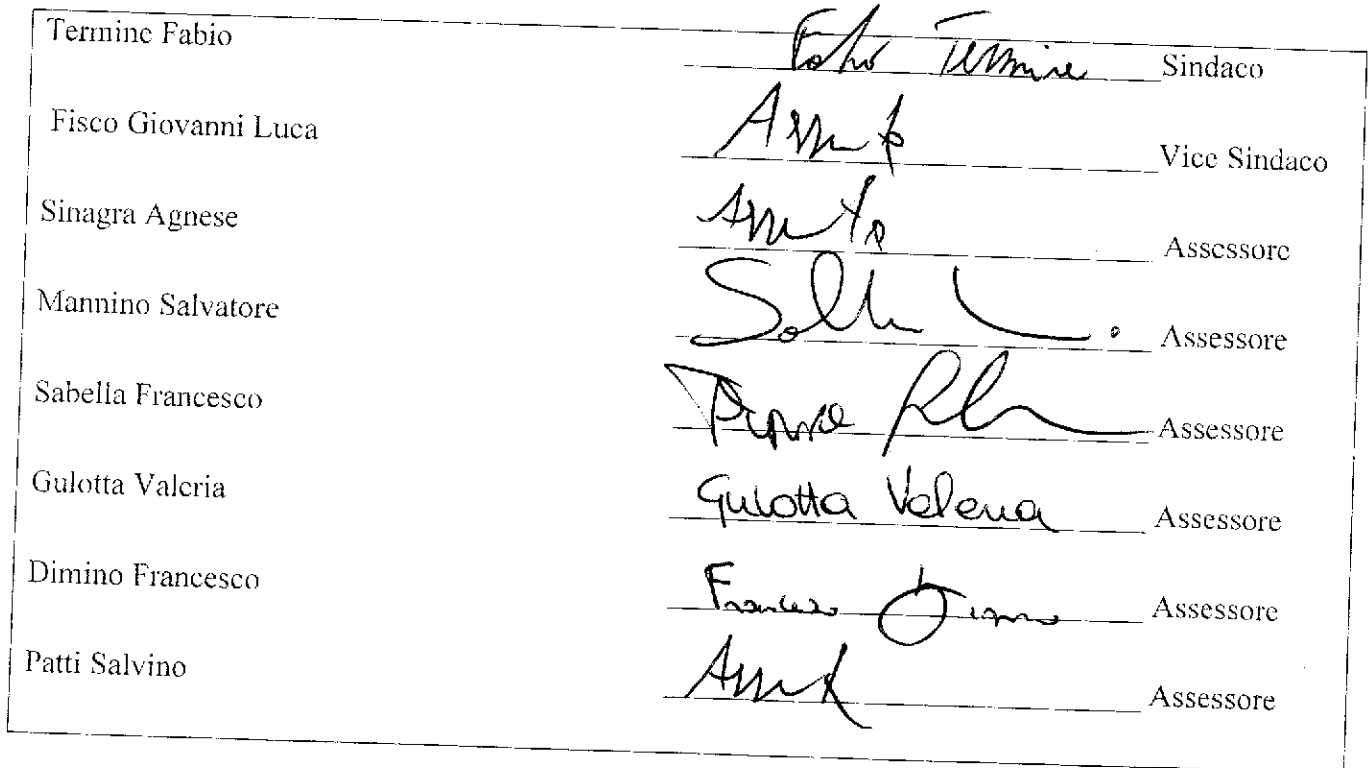 Termine Fabio Fabio Termine Sindaco
Fisco Giovanni Luca Assente Vice Sindaco
Sinagra Agnese Assente Assessore
Mannino Salvatore Assessore
Sabella Francesco Assessore
Gulotta Valeria Gulotta Valeria Assessore
Dimino Francesco Francesco Dimino Assessore
Patti Salvino Assente Assessore